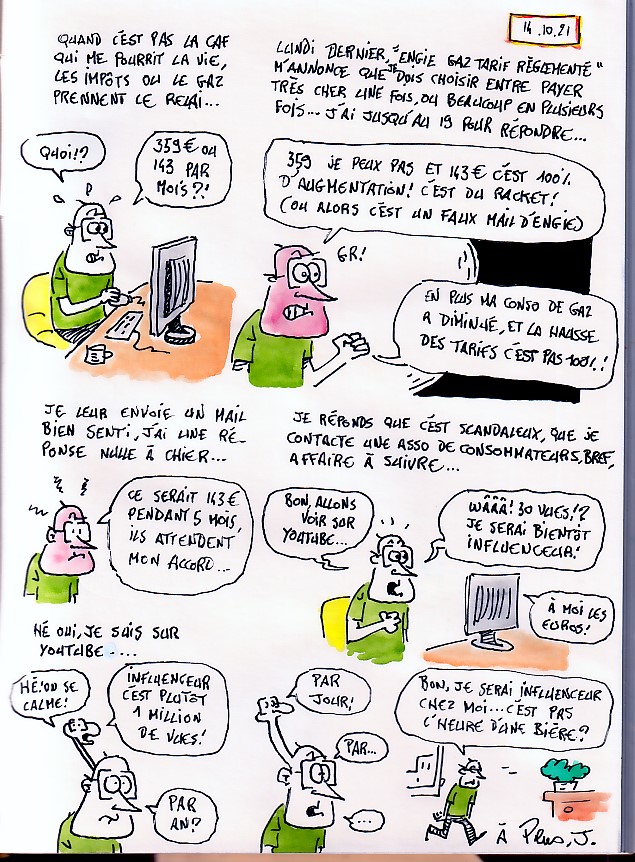 14.10.21
QUAND C'EST PAS LA CAF
QUI ME POURRIT LA VIE,
LES IMPÔTS OU LE GAZ
PRENNENT LE RELAI...
LUNDI DERNIER, "ENGIE GAZ TARIF RÈGLEMENTÉ"
M'ANNONCE QUE JE DOIS CHOISIR ENTRE PAYER
TRÈS CHER UNE FOIS, OU BEAUCOUP EN PLUSIEURS
FOIS... J'AI JUSQU'AU 19 POUR RÉPONDRE...
QUOI!?
359 € OU
143 PAR
MOIS?!
359 JE PEUX PAS ET 143 € C'EST 100%
D'AUGMENTATION! C'EST DU RACKET!
(OU ALORS C'EST UN FAUX MAIL D'ENGIE)
GR!
EN PLUS MA CONSO DE GAZ
A DIMINUÉ, ET LA HAUSSE
DES TARIFS C'EST PAS 100%!
JE LEUR ENVOIE UN MAIL
BIEN SENTI, J'AI UNE RÉ-
PONSE NULLE À CHIER...
CE SERAIT 143 €
PENDANT 5 MOIS,
ILS ATTENDENT
MON ACCORD...
JE RÉPONDS QUE C'EST SCANDALEUX, QUE JE
CONTACTE UNE ASSO DE CONSOMMATEURS, BREF,
AFFAIRE À SUIVRE...
BON, ALLONS
VOIR SUR
YOUTUBE...
WÂÂÂ! 30 VUES!?
JE SERAI BIENTÔT
INFLUENCEUR!
À MOI LES
EUROS!
HÉ OUI, JE SUIS SUR
YOUTUBE....
HÉ! ON SE
CALME!
INFLUENCEUR
C'EST PLUTÔT
1 MILLION
DE VUES!
PAR
AN?
PAR
JOUR!
PAR...
...
BON, JE SERAI INFLUENCEUR
CHEZ MOI... C'EST PAS
L'HEURE D'UNE BIÈRE?
À PLUS, J.